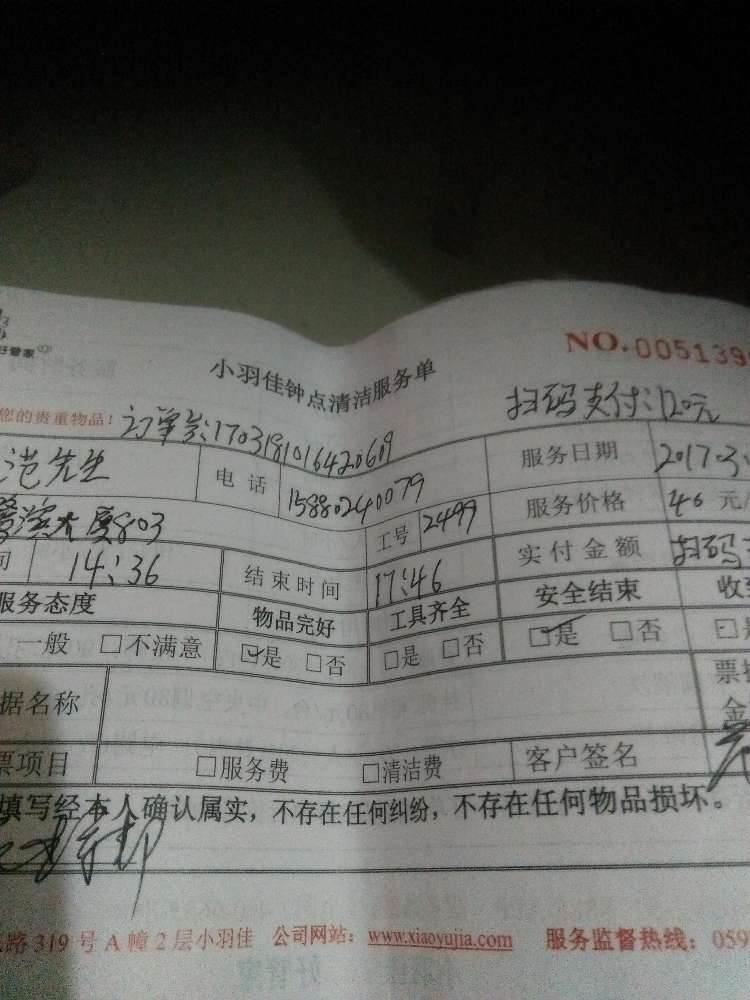 好管家
NO.005139
小羽佳钟点清洁服务单
您的贵重物品！ 订单号:170318101642060 扫码支付:120元
范先生 电话 15880240079 服务日期 2017.3.
大厦803 工号 2499 服务价格 40 元/
间 14:36 结束时间 17:46 实付金额 扫码
服务态度 物品完好 工具齐全 安全结束 收
一般 □不满意 ☑是 □否 □是 □否 ☑是 □否
据名称 票
票项目 □服务费 □清洁费 客户签名 金
填写经本人确认属实，不存在任何纠纷，不存在任何物品损坏。
路 319 号 A 幢 2 层小羽佳 公司网站：www.xiaoyujia.com 服务监督热线：059